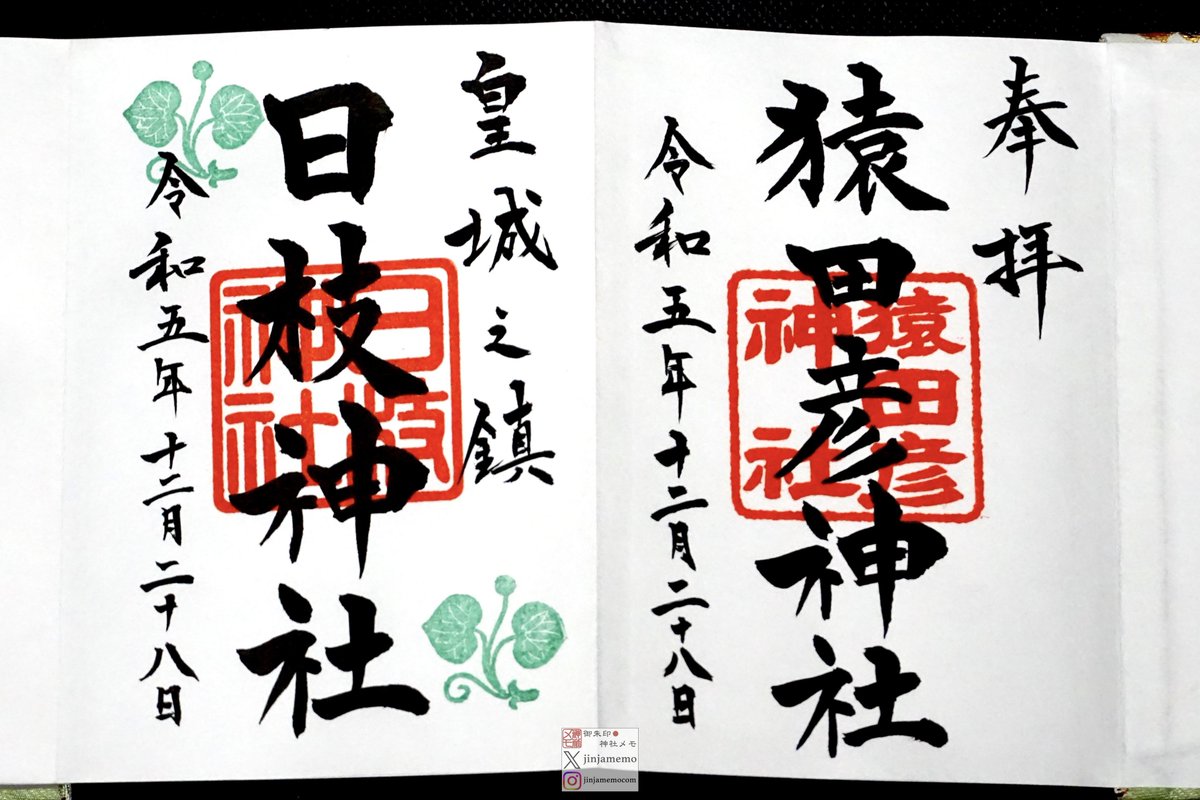 奉拝
猿田彦神社
猿田彦
神社
令和五年十二月二十八日
皇城之鎮
日枝神社
日枝
神社
令和五年十二月二十八日
御朱印●
神社メモ
jinjamemo
jinjamemocom